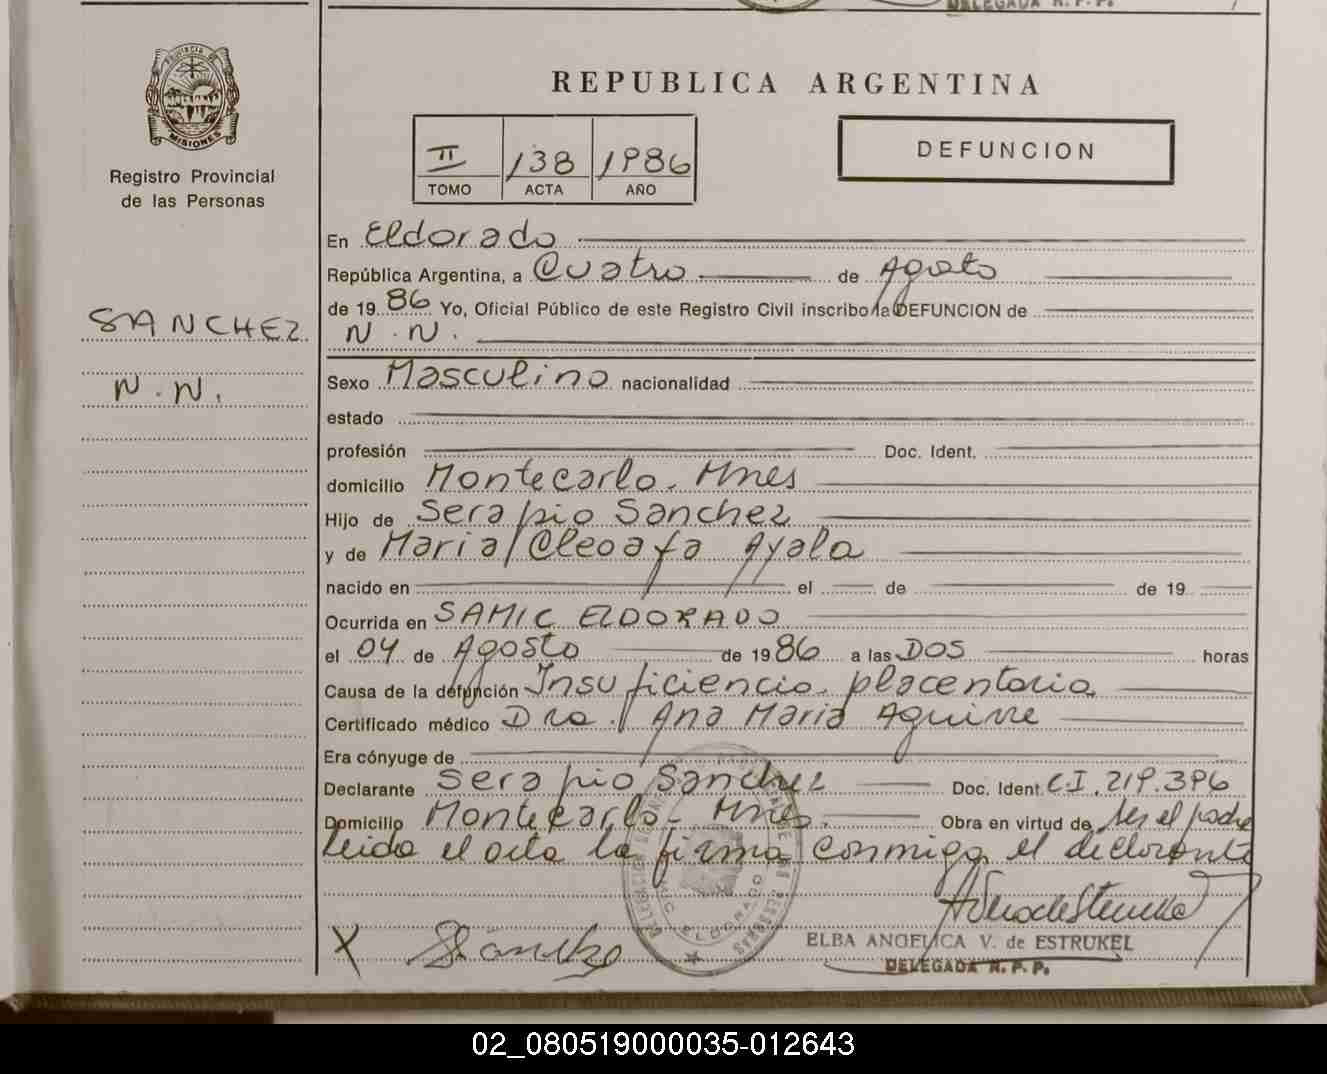 DELEGADA R.P.P.
PROVINCIA
MISIONES
Registro Provincial
de las Personas
SANCHEZ
N.N.
REPUBLICA ARGENTINA
II 138 1986
TOMO ACTA AÑO
DEFUNCION
En Eldorado
República Argentina, a Cuatro de Agosto
de 1986 Yo, Oficial Público de este Registro Civil inscribo la DEFUNCION de
N.N.
Sexo Masculino nacionalidad
estado
profesión Doc. Ident.
domicilio Montecarlo. Mnes
Hijo de Serapio Sanchez
y de Maria Cleoafa Ayala
nacido en el de de 19
Ocurrida en SAMIC ELDORADO
el 04 de Agosto de 1986 a las DOS horas
Causa de la defunción Insuficiencia placentaria
Certificado médico Dra. Ana Maria Aguirre
Era cónyuge de
Declarante Serapio Sanchez Doc. Ident. C.I. 219.396
Domicilio Montecarlo - Mnes. Obra en virtud de ser el padre
leida el acta la firma conmigo el declarante
ELDORADO
X Sanchez
ELBA ANGELICA V. de ESTRUKEL
DELEGADA R.P.P.
02_080519000035-012643